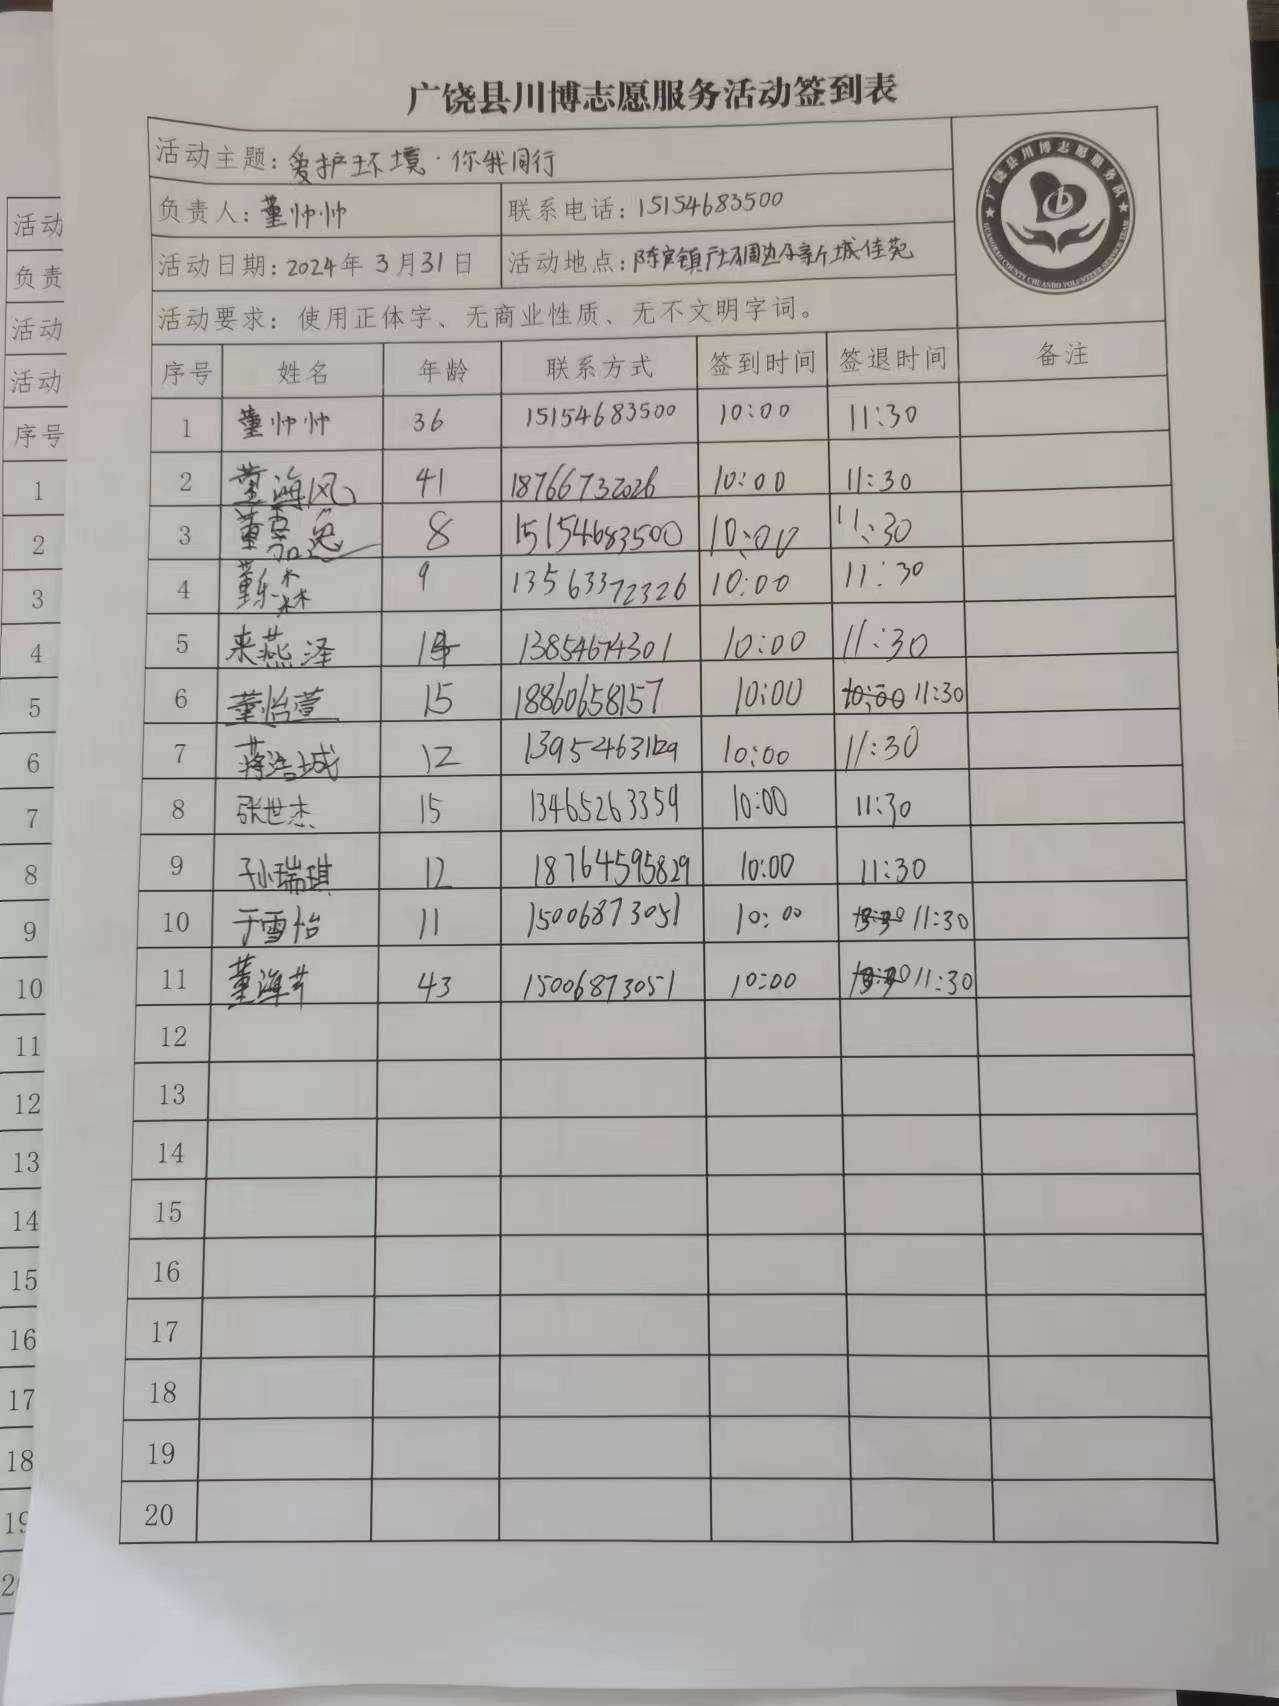 广饶县川博志愿服务活动签到表
活动主题：爱护环境·你我同行
负责人：董帅帅 联系电话：15154683500
活动日期：2024年3月31日 活动地点：陈官镇 新城佳苑
活动要求：使用正体字、无商业性质、无不文明字词。
广饶县川博志愿服务队
GUANGRAO COUNTY CHUANBO VOLUNTEER SERVICE TEAM
序号 姓名 年龄 联系方式 签到时间 签退时间 备注
1 董帅帅 36 15154683500 10:00 11:30
2 董海风 41 18766732026 10:00 11:30
3 董嘉逸 8 15154683500 10:00 11:30
4 董乐森 9 13563372326 10:00 11:30
5 来燕泽 13854674301 10:00 11:30
6 董怡萱 15 18860658157 10:00 11:30
7 蒋浩城 12 10:00 11:30
8 张世杰 15 13465263359 10:00 11:30
9 孙瑞琪 12 18764595829 10:00 11:30
10 于雪怡 11 15006873051 10:00 11:30
11 董海 43 15006873051 10:00 11:30
12
13
14
15
16
17
18
19
20
活动
负责
活动
活动
序号
1
2
3
4
5
6
7
8
9
10
11
12
13
14
15
16
17
18